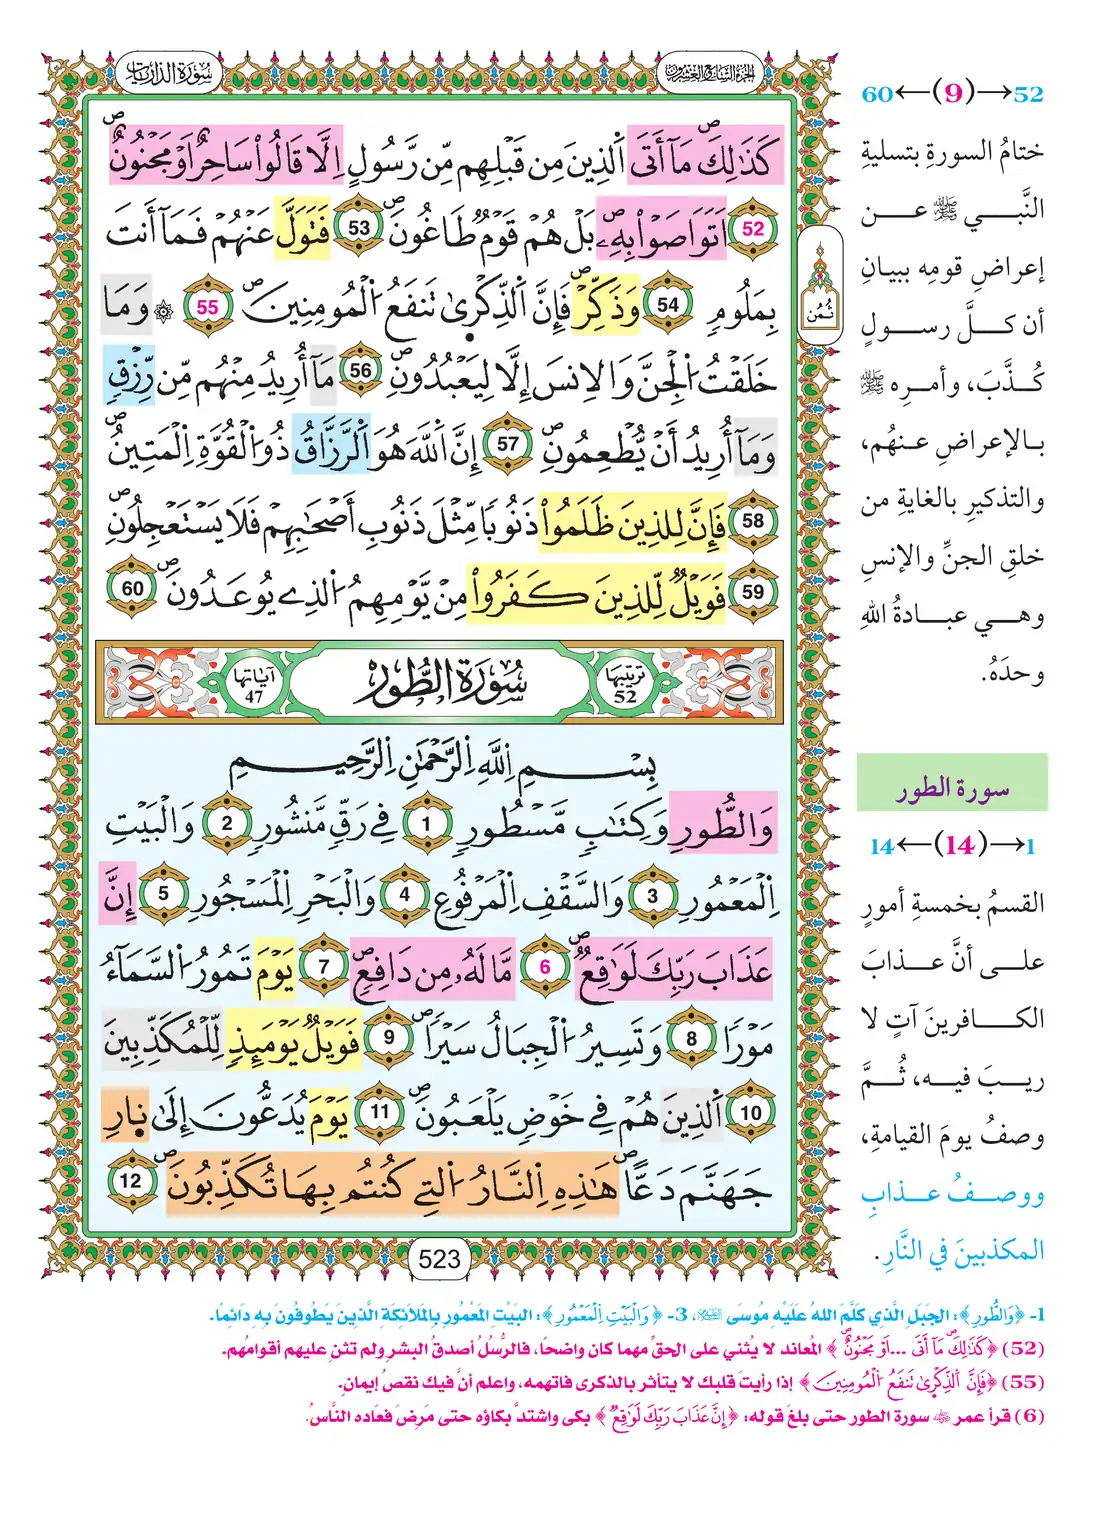 سُورَةُ الذَّارِيَاتِ
الجُزْءُ السَّابِعُ وَالعِشْرُونَ
كَذَٰلِكَۖ مَآ أَتَى اَ۬لذِينَ مِن قَبْلِهِم مِّن رَّسُولٍ اِلَّا قَالُواْ سَاحِرٌ اَوْ مَجْنُونٌۖ
52 اَتَوَاصَوْاْ بِهِۦۖ بَلْ هُمْ قَوْمٞ طَاغُونَۖ 53 فَتَوَلَّ عَنْهُمْ فَمَآ أَنتَ
بِمَلُومٖ 54 وَذَكِّرْۖ فَإِنَّ اَ۬لذِّكْر۪ىٰ تَنفَعُ اُ۬لْمُومِنِينَۖ 55 ۞ وَمَا
خَلَقْتُ اُ۬لْجِنَّ وَالِانسَ إِلَّا لِيَعْبُدُونِۖ 56 مَآ أُرِيدُ مِنْهُم مِّن رِّزْقٖ
وَمَآ أُرِيدُ أَنْ يُّطْعِمُونِۖ 57 إِنَّ اَ۬للَّهَ هُوَ اَ۬لرَّزَّاقُ ذُو اُ۬لْقُوَّةِ اِ۬لْمَتِينُۖ
58 فَإِنَّ لِلذِينَ ظَلَمُواْ ذَنُوباٗ مِّثْلَ ذَنُوبِ أَصْحَٰبِهِمْ فَلَا يَسْتَعْجِلُونِۖ
59 فَوَيْلٞ لِّلذِينَ كَفَرُواْ مِنْ يَّوْمِهِمُ اُ۬لذِے يُوعَدُونَۖ 60
ثُمُن
تَرْتِيبُهَا 52
سُورَةُ الطُّورِ
آيَاتُهَا 47
بِسْمِ اِ۬للَّهِ اِ۬لرَّحْمَٰنِ اِ۬لرَّحِيمِ
وَالطُّورِ وَكِتَٰبٖ مَّسْطُورٖ 1 فِے رَقّٖ مَّنشُورٖ 2 وَالْبَيْتِ
اِ۬لْمَعْمُورِ 3 وَالسَّقْفِ اِ۬لْمَرْفُوعِ 4 وَالْبَحْرِ اِ۬لْمَسْجُورِ 5 إِنَّ
عَذَابَ رَبِّكَ لَوَٰقِعٞۖ 6 مَّا لَهُۥ مِن دَافِعٖۖ 7 يَوْمَ تَمُورُ اُ۬لسَّمَآءُ
مَوْراٗ 8 وَتَسِيرُ اُ۬لْجِبَالُ سَيْراٗۖ 9 فَوَيْلٞ يَوْمَئِذٖ لِّلْمُكَذِّبِينَ
10 اَ۬لذِينَ هُمْ فِے خَوْضٖ يَلْعَبُونَۖ 11 يَوْمَ يُدَعُّونَ إِلَىٰ نارِ۪
جَهَنَّمَ دَعّاًۖ هَٰذِهِ اِ۬لنَّارُ اُ۬لتِے كُنتُم بِهَا تُكَذِّبُونَۖ 12
523
52→(9)←60
ختامُ السورةِ بتسليةِ
النَّبي ﷺ عن
إعراضِ قومِه ببيانِ
أن كلَّ رسولٍ
كُذَّبَ، وأمرِه ﷺ
بالإعراضِ عنهُم،
والتذكيرِ بالغايةِ من
خلقِ الجنِّ والإنسِ
وهي عبادةُ اللهِ
وحدَهُ.
سورة الطور
1→(14)←14
القسمُ بخمسةِ أمورٍ
على أنَّ عذابَ
الكافرينَ آتٍ لا
ريبَ فيه، ثُمَّ
وصفُ يومَ القيامةِ،
ووصفُ عذابِ
المكذبينَ في النَّارِ.
1- ﴿وَالطُّورِ﴾: الجبَلِ الَّذِي كَلَّمَ اللهُ عَلَيْهِ مُوسَى عليه السلام، 3- ﴿وَالْبَيْتِ اِ۬لْمَعْمُورِ﴾: البَيْتِ المَعْمُورِ بِالمَلَائِكَةِ الَّذِينَ يَطُوفُونَ بِهِ دَائِمًا.
(52) ﴿كَذَٰلِكَۖ مَآ أَتَى ... أَوْ مَجْنُونٌۖ﴾ المُعاند لا يُثني على الحقِّ مهما كان واضحًا، فالرسُلُ أصدقُ البشرِ ولم تثنِ عليهم أقوامُهم.
(55) ﴿فَإِنَّ اَ۬لذِّكْر۪ىٰ تَنفَعُ اُ۬لْمُومِنِينَ﴾ إذا رأيتَ قلبك لا يتأثر بالذكرى فاتهمه، واعلم أنَّ فيك نقصُ إيمانٍ.
(6) قرأ عمر رضي الله عنه سورة الطور حتى بلغَ قوله: ﴿إِنَّ عَذَابَ رَبِّكَ لَوَٰقِعٞ﴾ بكى واشتدَّ بكاؤه حتى مَرِضَ فعَاده النَّاسُ.